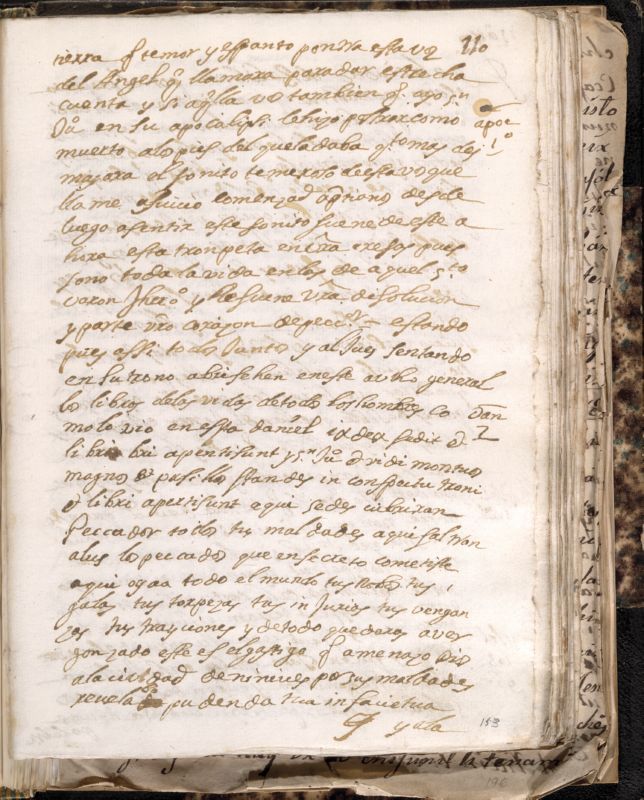 110
tierra q temor y espanto pondra esta voz
del Angel q llamara para dar estrecha
cuenta y si aqlla voz tambien q oyo sn
Ju en su apocalipsi le hizo postrar como
apoc
1º
muerto a los pies del que la daba q tomas des
mayara el sonito temeroso desta voz que
llame a juicio comenzad desde
luego a sentir este sonito suene desde a
hora esta tronpeta en vras orejas pues
sono toda la vida en las de aquel sto
varon Jhero y Resuene vra disolucion
y parte vro corazon estando
pues assi todos Juntos y al Juez sentando
en su trono abrise hen en este general
los libros de las vidas de todos los hombres co
dan
7
mo lo vio en esta daniel iudex sedit &
libri aperti sunt y sn Ju & vidi mortuos
magnos & pusillos standes in conspectu troni
& libri aperti sunt aqui se descubriran
peccador todas tus maldades aqui saldran
a luz los peccados que en secreto cometiste
aqui oyra todo el mundo tus robos tus
galas tus torpezas tus injurias tus vengan
zas tus trayciones y de todo quedaras aver
gonzado este es el castigo q amenazo Dios
a la ciudad de ninive por sus maldades
revelabo pudenda tua in facie tua
y a la
153
196